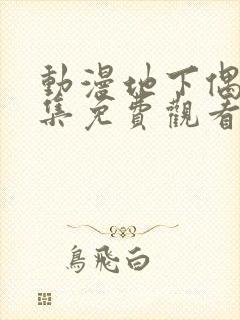 動漫地下偶
集免費觀看
鳥飛白